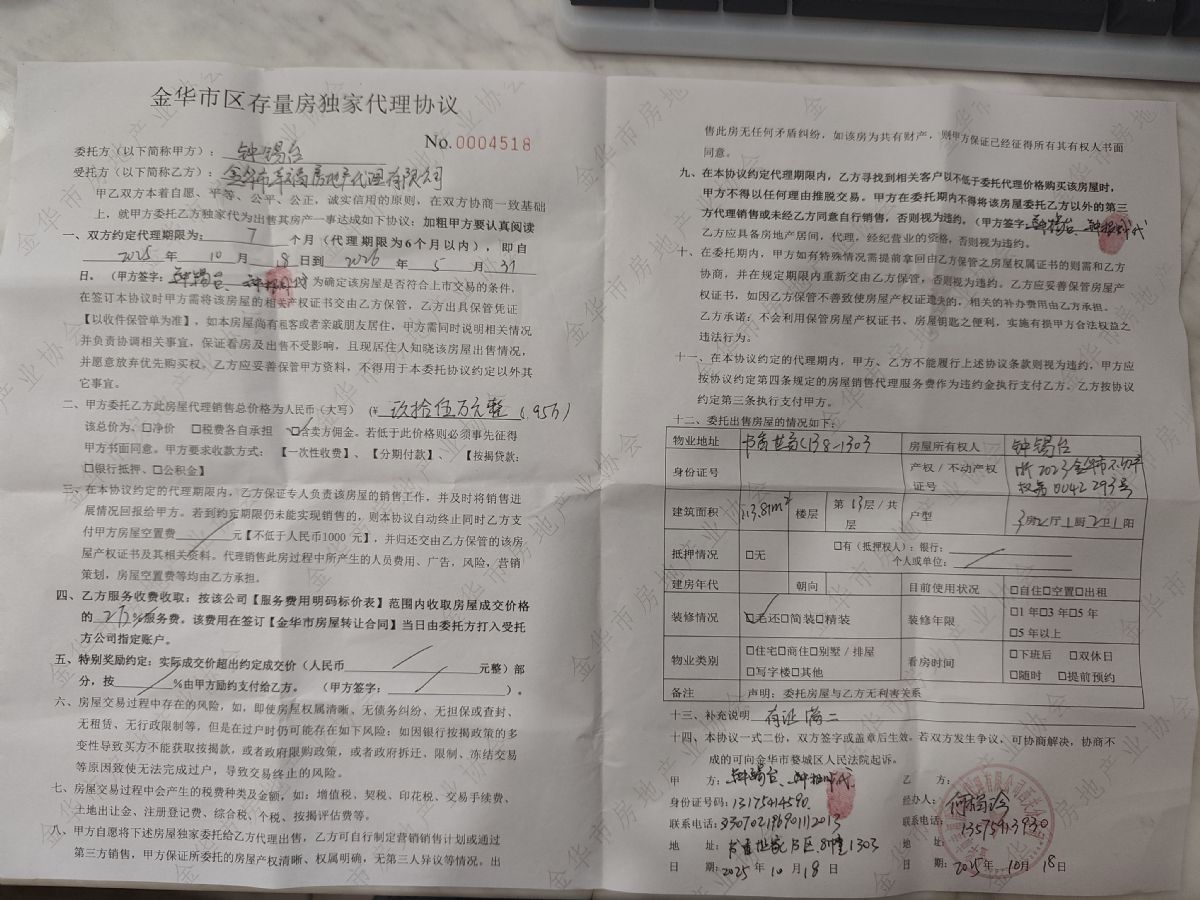 金华市区存量房独家代理协议
No.0004518
委托方（以下简称甲方）：钟锡台
受托方（以下简称乙方）：金华市 房地产代理有限公司
甲乙双方本着自愿、平等、公平、公正，诚实信用的原则，在双方协商一致基础
上，就甲方委托乙方独家代为出售其房产一事达成如下协议：加粗甲方要认真阅读
一、双方约定代理期限为： 7 个月（代理期限为6个月以内），即自
2025 年 10 月 18 日到 2026 年 5 月 31
日。（甲方签字：钟锡台、 代 为确定该房屋是否符合上市交易的条件，
在签订本协议时甲方需将该房屋的相关产权证书交由乙方保管，乙方出具保管凭证
【以收件保管单为准】，如本房屋尚有租客或者亲戚朋友居住，甲方需同时说明相关情况
并负责协调相关事宜，保证看房及出售不受影响，且现居住人知晓该房屋出售情况，
并愿意放弃优先购买权。乙方应妥善保管甲方资料，不得用于本委托协议约定以外其
它事宜。
二、甲方委托乙方此房屋代理销售总价格为人民币（大写）（¥ 玖拾伍万元整 （95万）
该总价为、□净价 □税费各自承担 ☑含卖方佣金。若低于此价格则必须事先征得
甲方书面同意。甲方要求收款方式：【一次性收费】、【分期付款】、【按揭贷款：
□银行抵押、□公积金】
三、在本协议约定的代理期限内，乙方保证专人负责该房屋的销售工作，并及时将销售进
展情况回报给甲方。若到约定期限仍未能实现销售的，则本协议自动终止同时乙方支
付甲方房屋空置费 / 元【不低于人民币1000 元】，并归还交由乙方保管的该房
屋产权证书及其相关资料。代理销售此房过程中所产生的人员费用、广告，风险，营销
策划，房屋空置费等均由乙方承担。
四、乙方服务收费收取：按该公司【服务费用明码标价表】范围内收取房屋成交价格
的 2万 %服务费。该费用在签订【金华市房屋转让合同】当日由委托方打入受托
方公司指定账户。
五、特别奖励约定：实际成交价超出约定成交价（人民币 / 元整）部
分，按 / %由甲方励约支付给乙方。（甲方签字： / ）。
六、房屋交易过程中存在的风险，如，即使房屋权属清晰、无债务纠纷、无担保或查封、
无租赁、无行政限制等，但是在过户时仍可能存在如下风险：如因银行按揭政策的多
变性导致买方不能获取按揭款，或者政府限购政策，或者政府拆迁、限制、冻结交易
等原因致使无法完成过户，导致交易终止的风险。
七、房屋交易过程中会产生的税费种类及金额，如：增值税、契税、印花税、交易手续费、
土地出让金、注册登记费、综合税、个税、按揭评估费等。
八、甲方自愿将下述房屋独家委托给乙方代理出售，乙方可自行制定营销销售计划或通过
第三方销售，甲方保证所委托的房屋产权清晰、权属明确，无第三人异议等情况。出
售此房无任何矛盾纠纷，如该房为共有财产，则甲方保证已经征得所有其有权人书面
同意。
九、在本协议约定代理期限内，乙方寻找到相关客户以不低于委托代理价格购买该房屋时，
甲方不得以任何理由推脱交易。甲方在委托期内不得将该房屋委托乙方以外的第三
方代理销售或未经乙方同意自行销售，否则视为违约。（甲方签字：钟锡台 代
乙方应具备房地产居间，代理，经纪营业的资格，否则视为违约。
十、在委托期内，甲方如有特殊情况需提前拿回由乙方保管之房屋权属证书的则需和乙方
协商，并在规定期限内重新交由乙方保管，否则视为违约。乙方应妥善保管房屋产
权证书，如因乙方保管不善致使房屋产权证遗失的，相关的补办费用由乙方承担。
乙方承诺：不会利用保管房屋产权证书、房屋钥匙之便利，实施有损甲方合法权益之
违法行为。
十一、在本协议约定的代理期内，甲方、乙方不能履行上述协议条款则视为违约，甲方应
按协议约定第四条规定的房屋销售代理服务费作为违约金执行支付乙方。乙方按协议
约定第三条执行支付甲方。
十二、委托出售房屋的情况如下：
物业地址 书香世家 38-1303 房屋所有权人 钟锡台
身份证号 产权／不动产权证号 浙2023金华市不动产权第0042293号
建筑面积 113.81m² 楼层 第 13 层/共 层 户型 3房2厅1厨2卫1阳
抵押情况 □无 □有（抵押权人）：银行：
个人或单位：
建房年代 朝向 目前使用状况 □自住□空置□出租
装修情况 ☑毛还□简装□精装 装修年限 □1年□3年□5年
□5年以上
物业类别 □住宅□商住□别墅／排屋 看房时间 □下班后 □双休日
□写字楼□其他 □随时 □提前预约
备注 声明：委托房屋与乙方无利害关系
十三、补充说明 有证满二
十四、本协议一式二份，双方签字或盖章后生效。若双方发生争议，可协商解决，协商不
成的可向金华市婺城区人民法院起诉。
甲 方：钟锡台、 代 乙 方：
身份证号码：13175414590 经办人：何
联系电话：330702196901112013 联系电话：13575913930
地 址：书香世家 区 幢1303 地 址：
日 期：2025年 10 月 18 日 日 期：2025年 10月 18日